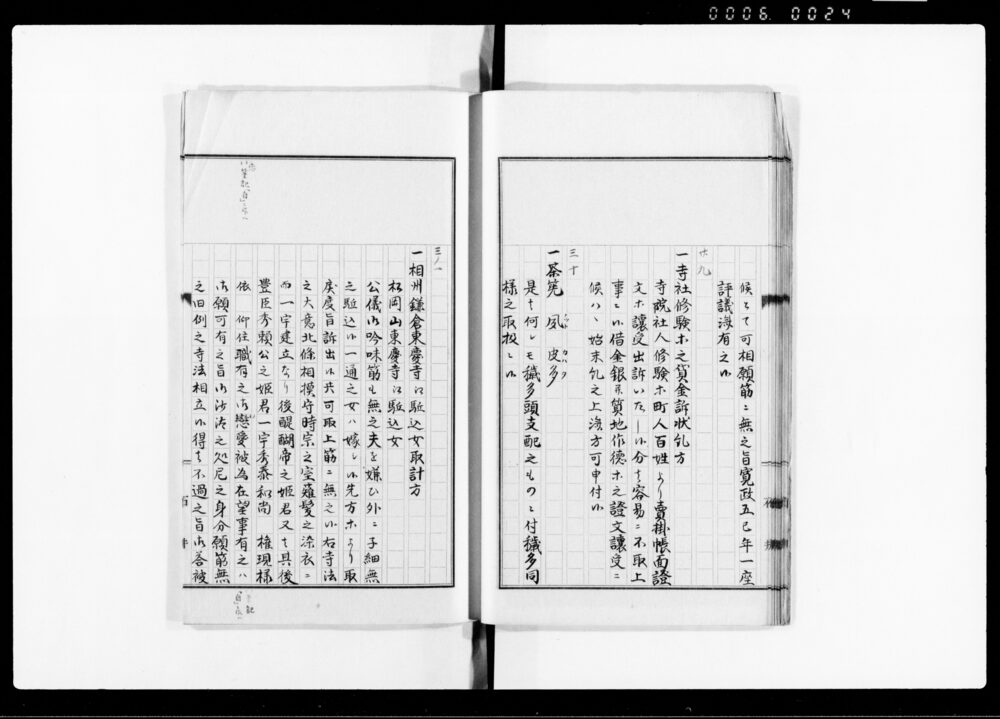 0006. 0024
候とて可相願筋ニ無之旨寛政五巳年一座
評議済有之候
廿九
一寺社修験ホ之貸金訴状糺方
寺院社人修験ホ町人百姓より賣掛帳面證
文ホ譲受出訴いたし候分ハ容易ニ不取上
事ニ候借金銀并質地作徳ホ之證文譲受ニ
候ハヽ始末糺之上済方可申付候
三十
一茶筅 風 皮多
是ハ何レモ穢多頭支配之ものニ付穢多同
様之取扱ニ候
三ノ一
一相州鎌倉東慶寺江駈込女取計方
松岡山東慶寺江駈込女
公儀御吟味筋も無之夫を嫌ひ外ニ子細無
之駈込候一通之女ハ嫁し候先方ホより取
戻度旨訴出候共可取上筋ニ無之候右寺法
之大意北條相摸守時宗之室薙髪之染衣ニ
而一宇建立なり後醍醐帝之姫君又ハ其後
豊臣秀頼公之姫君一宇秀泰和尚 権現様
依 仰住職有之御戀愛被為在望事有之ハ
御願可有之旨御沙汰之処尼之身分願筋無
之旧例之寺法相立候得ハ不過之旨御答被